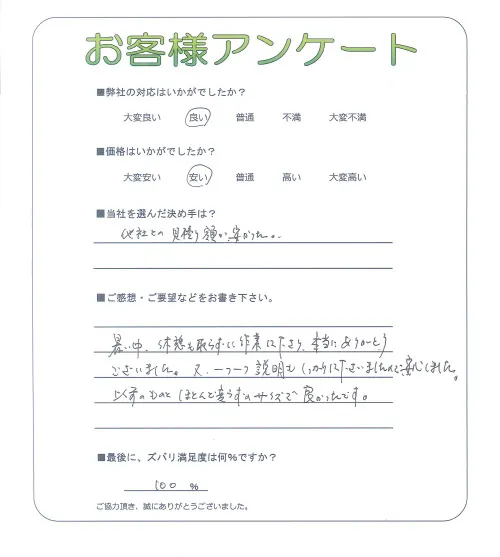 お客様アンケート
■弊社の対応はいかがでしたか？
大変良い 良い 普通 不満 大変不満
■価格はいかがでしたか？
大変安い 安い 普通 高い 大変高い
■当社を選んだ決め手は？
他社との見積り額が安かった。
■ご感想・ご要望などをお書き下さい。
暑い中、休憩も取らずに作業して下さり、本当にありがとう
ございました。又、一つ一つ説明もしっかりして下さいましたので安心しました。
以前のものとほとんど変らずのサイズで良かったです。
■最後に、ズバリ満足度は何%ですか？
100 %
ご協力頂き、誠にありがとうございました。